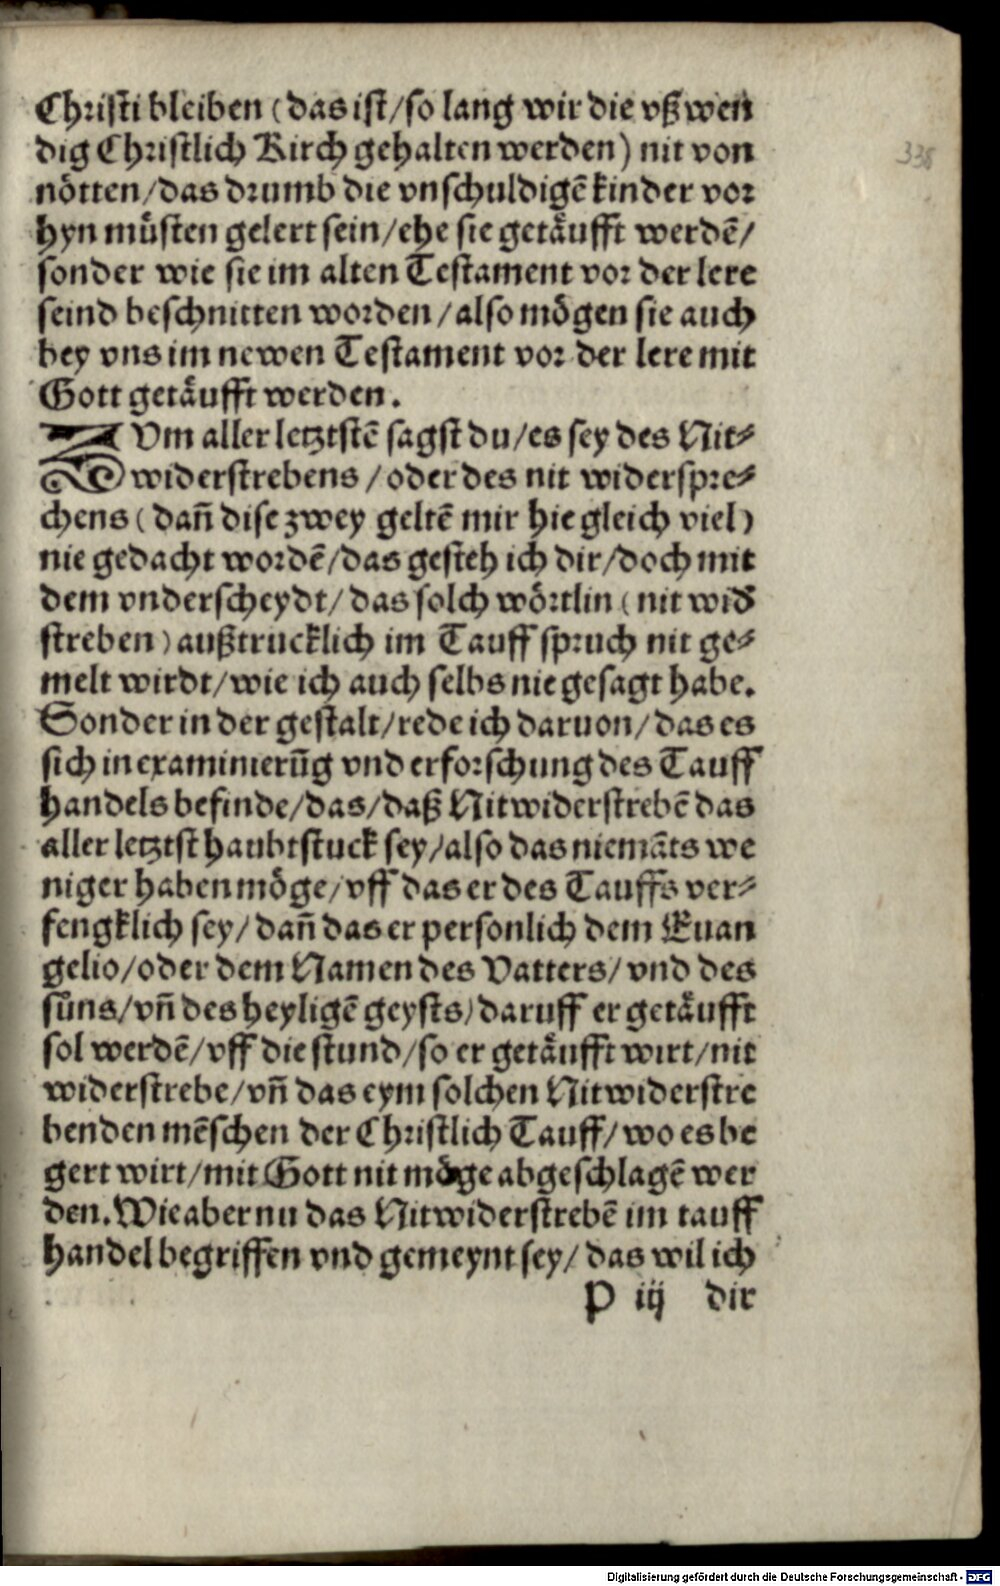 Christi bleiben (das ist/so lang wir die vßwen
dig Christlich Kirch gehalten werden) nit von
nötten/das drumb die vnschuldigē kinder vor
hyn můsten gelert sein/ehe sie getäufft werdē/
sonder wie sie im alten Testament vor der lere
seind beschnitten worden/also mögen sie auch
bey vns im newen Testament vor der lere mit
Gott getäufft werden.
ZVm aller letztstē sagst du/es sey des Nit⸗
widerstrebens/oder des nit widerspre⸗
chens (dañ dise zwey geltē mir hie gleich viel)
nie gedacht wordē/das gesteh ich dir/doch mit
dem vnderscheydt/das solch wörtlin (nit wid
streben) außtrucklich im Tauff spruch nit ge⸗
melt wirdt/wie ich auch selbs nie gesagt habe.
Sonder in der gestalt/rede ich daruon/das es
sich in examinierūg vnd erforschung des Tauff
handels befinde/das/daß Nitwiderstrebē das
aller letztst haubtstuck sey/also das niemāts we
niger haben möge/vff das er des Tauffs ver⸗
fengklich sey/dañ das er personlich dem Euan
gelio/oder dem Namen des Vatters/vnd des
sůns/vñ des heyligē geysts/daruff er getäufft
sol werdē/vff die stund/so er getäufft wirt/nit
widerstrebe/vñ das eym solchen Nitwiderstre
benden mēschen der Christlich Tauff/wo es be
gert wirt/mit Gott nit möge abgeschlagē wer
den. Wie aber nu das Nitwiderstrebē im tauff
handel begriffen vnd gemeynt sey/das wil ich
P iij dir
338
Digitalisierung gefördert durch die Deutsche Forschungsgemeinschaft - DFG